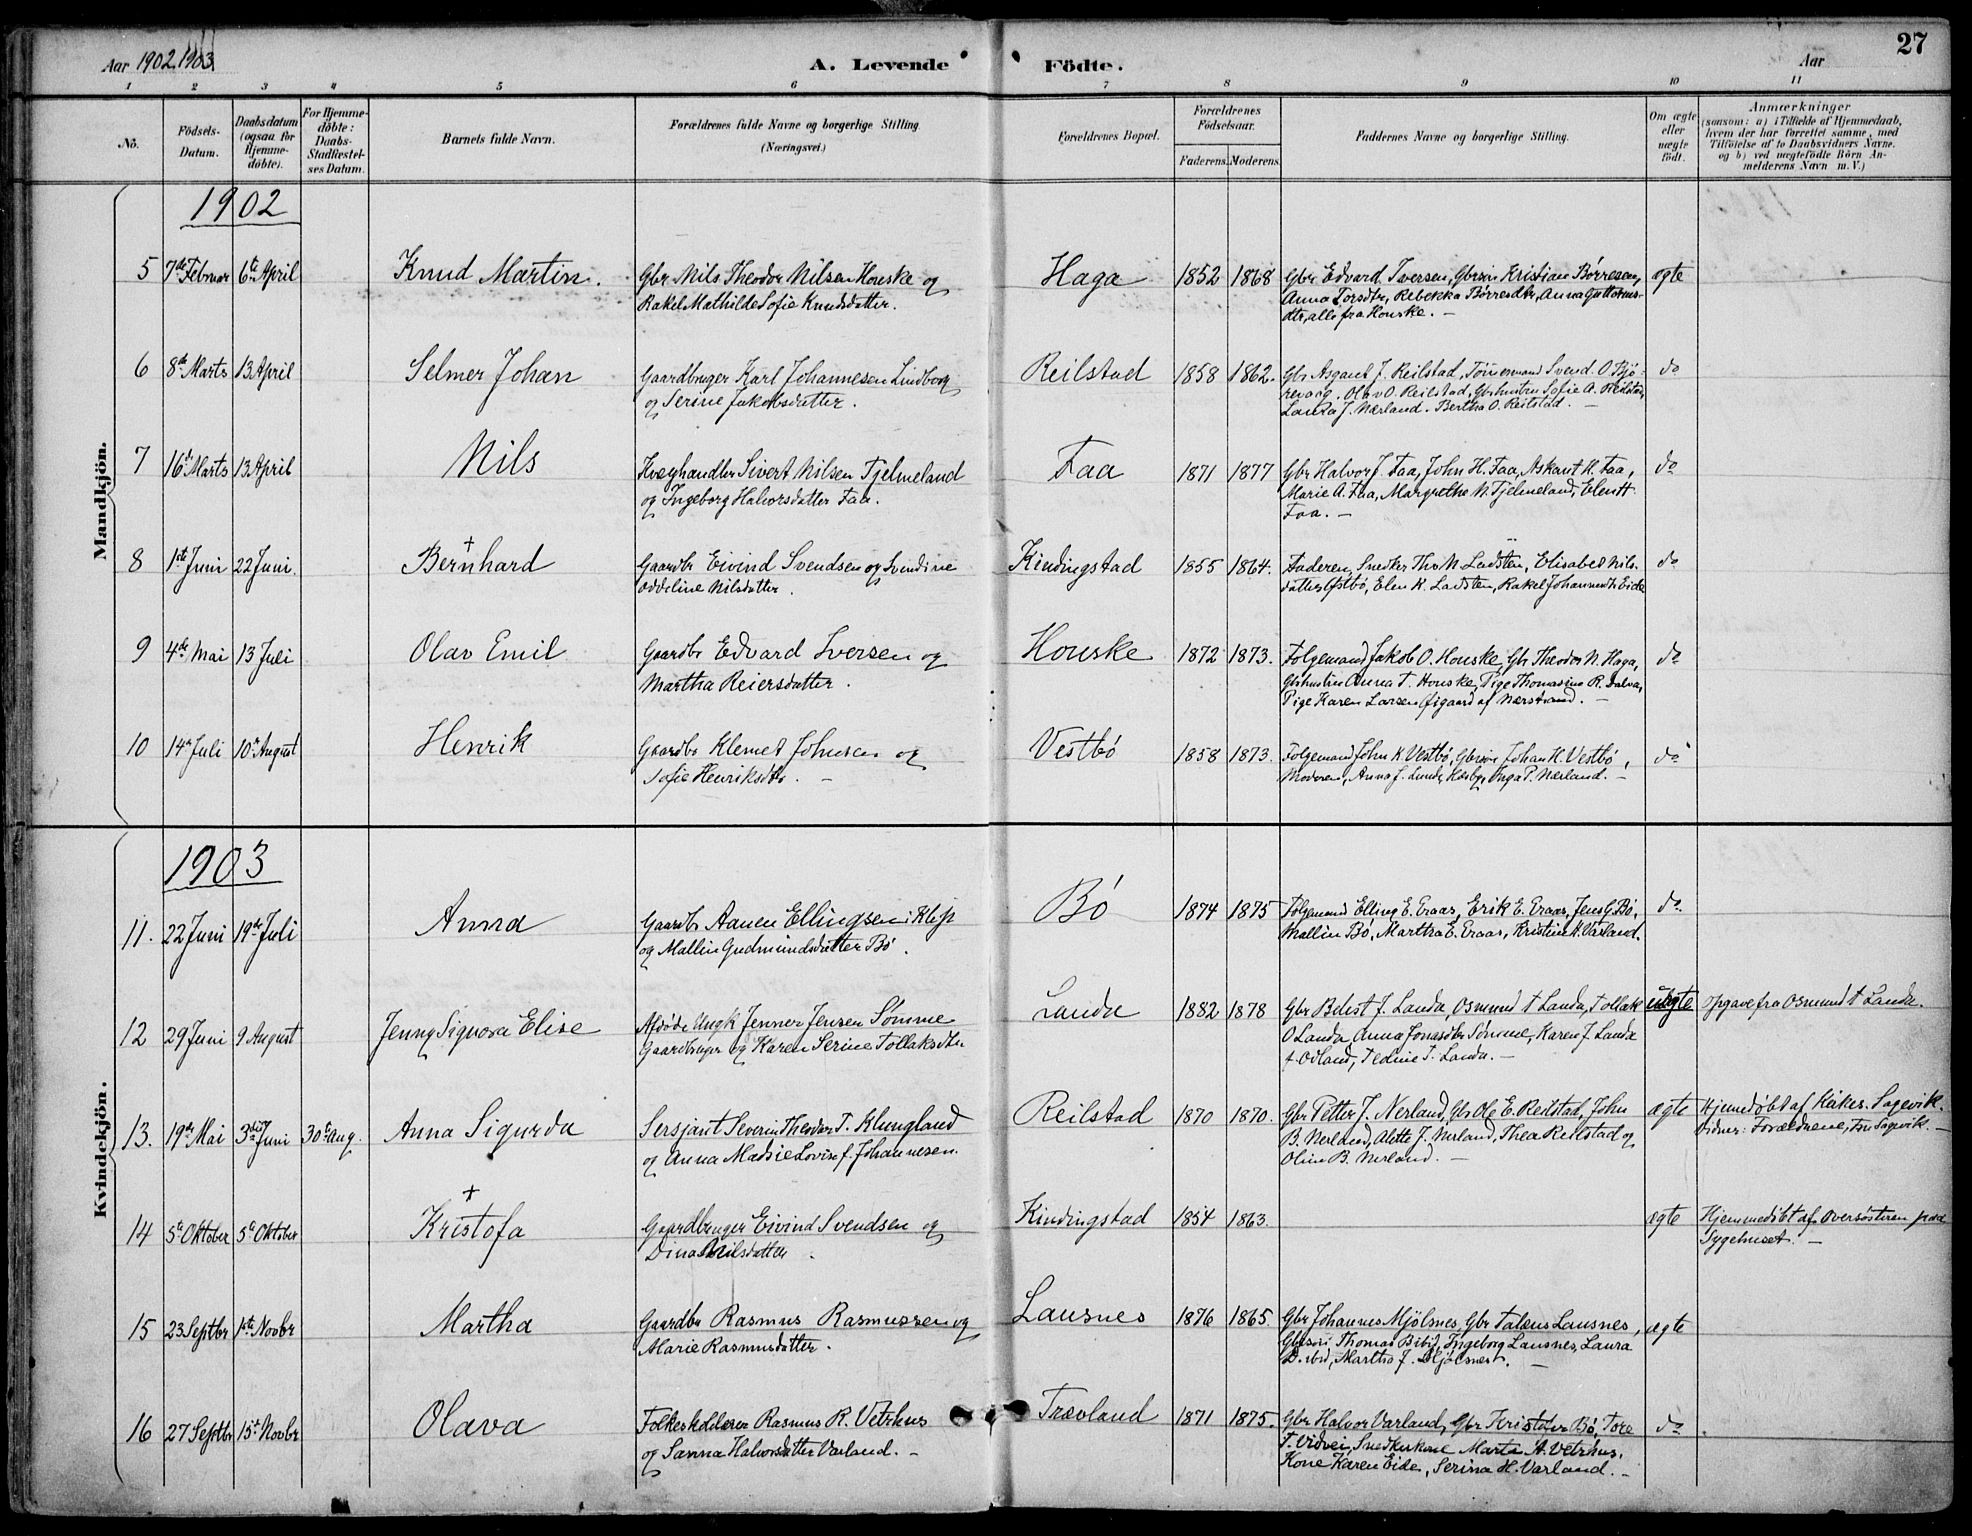 Aar 1902. 1903.
A. Levende Födte.
Aar
27
1 2 3 4 5 6 7 8 9 10 11
No.
Födsels-Datum.
Daabsdatum (ogsaa for Hjemme-döbte).
For Hjemme-döbte: Daabs-Stadfæstel-ses Datum.
Barnets fulde Navn.
Forældrenes fulde Navne og borgerlige Stilling. (Næringsvei.)
Forældrenes Bopæl.
Forældrenes Födselsaar.
Faderens. Moderens.
Faddernes Navne og borgerlige Stilling.
Om ægte eller uægte födt.
Anmærkninger (saasom: a) i Tilfælde af Hjemmedaab, hvem der har forrettet samme, med Tilföielse af to Daabsvidners Navne. og b) ved uægtefödte Börn An-melderens Navn m. V.)
Mandkjön.
1902
5 7de Februar 6te April Knud Martin. Gbr Nils Theodor Nilsen Houske og
Rakel Mathilde Sofie Knudsdatter.
Haga 1852 1868 Gbr Edvard Iversen, Gbrsön Kristian Børresen,
Anna Torsdtr, Rebekka Børresdtr, Anna Guttorms-
dtr, alle fra Houske. —
ægte
6 8de Marts 13 April Selmer Johan Gaardbruger Karl Johannesen Lindborg
og Serine Jakobsdatter.
Reilstad 1858 1862. Gbr Asgaut J. Reilstad, Tömermand Svend O. Bjö-
revaag, Olav O. Reilstad, Gbrhustru Sofie A. Reilstad,
Laura J. Nærland. Bertha O. Reilstad. —
do
7 16de Marts 13 April Nils Kvæghandler Sivert Nilsen Tjelmeland
og Ingeborg Halvorsdatter Faa.
Faa 1871 1877 Gbr Halvor J. Faa, John H. Faa, Askaut H. Faa,
Marie A. Faa, Margrethe N. Tjelmeland, Elen H.
Faa. —
do
8 1ste Juni 22 Juni. + Bernhard Gaardbr Eivind Svendsen og Svendine
Oddeline Nilsdatter.
Kindingstad 1855 1864. Faderen, Snedker Ths M. Ladsten, Elisabed Nils-
datter Østbö, Elen K. Ladsten, Rakel Johannesdtr Eide
do
9 4de Mai 13 Juli Olav Emil Gaardbr Edvard Iversen og
Martha Reiersdatter.
Houske 1872 1873. Folgemand Jakob O. Houske, Gbr Theodor N. Haga,
Gbrhustru Anna T. Houske, Pige Thomasine R. Dalva,
Pige Karen Larsen Øigaard af Nærstrand. —
do
10 14de Juli 10de August Henrik Gaardbr Klemet Johnsen og
Sofie Henriksdtr. —
Vestbö 1858 1873. Folgemand John K. Vestbö, Gbrsön Johan H. Vestbö,
Moderen, Anna J. Lunde, Inga P. Nærland. —
do
Kvindekjön.
1903
11. 22 Juni 19de Juli Anna Gaardbr Aanen Ellingsen i Klep
og Mallin Gudmundsdatter Bö.
Bö 1874 1875 Folgemand Elling E. Eraas, Erik E. Eraas, Jens G. Bö,
Mallin Bö, Martha E. Eraas, Kristine H. Varland.
do
12 29 Juni 9 August Jenny Signora Elise Afdöde Ungk Jenner Jensen Sömme
Gaardbruger og Karen Serine Tollaksdtr
Landa 1882 1878 Gbr Berist J. Landa, Osmund T Landa, Tollak
O Landa Anna Jonasdtr Sömme, Karen J. Landa
T. Landa. —
uægte Opgave fra Osmund T Landa.
13. 19de Mai 3die Juni 30te Aug. Anna Sigurda Sersjant Severin Theodor T. Klungland
og Anna Madsie Lovise f. Johannesen.
Reilstad 1870 1870. Gbr Petter J. Nerland, Gbr Ole E. Reilstad, John
B. Nerland, Alette J. Nerland, Thea Reilstad og
Oline B. Nerland. —
ægte Hjemmedöbt af Kirkes. Sagevik.
Vidner: Forældrene, Fru Sagevik. —
14 5te Oktober 5te Oktober + Kristofa Gaardbruger Eivind Svendsen og
Dina Nilsdatter.
Kindingstad 1854 1863. ægte Hjemmedöbt af Oversösteren paa
Sygehuset. —
15 23 Septbr 1ste Novbr Martha Gaardbr Rasmus Rasmussen og
Marie Rasmusdatter.
Lausnes 1876 1865. Gbr Johannes Mjölsnes, Gbr Lausnes,
Gbrsön Thomas Ingeborg Lausnes, Laura
Martha J. Mjölsnes. —
ægte
16 27 Septbr 15de Novbr Olava Folkeskolelærer Rasmus R. Vetrhus
og Sanna Halvorsdatter Varland. —
Trævland 1871 1875. Gbr Halvor Varland, Gbr Kristofer Bö, Tore
T. Vidvei, Snedkerkone Marta A. Vetrhus,
Kone Karen Eide, Serina H. Varland. —
do